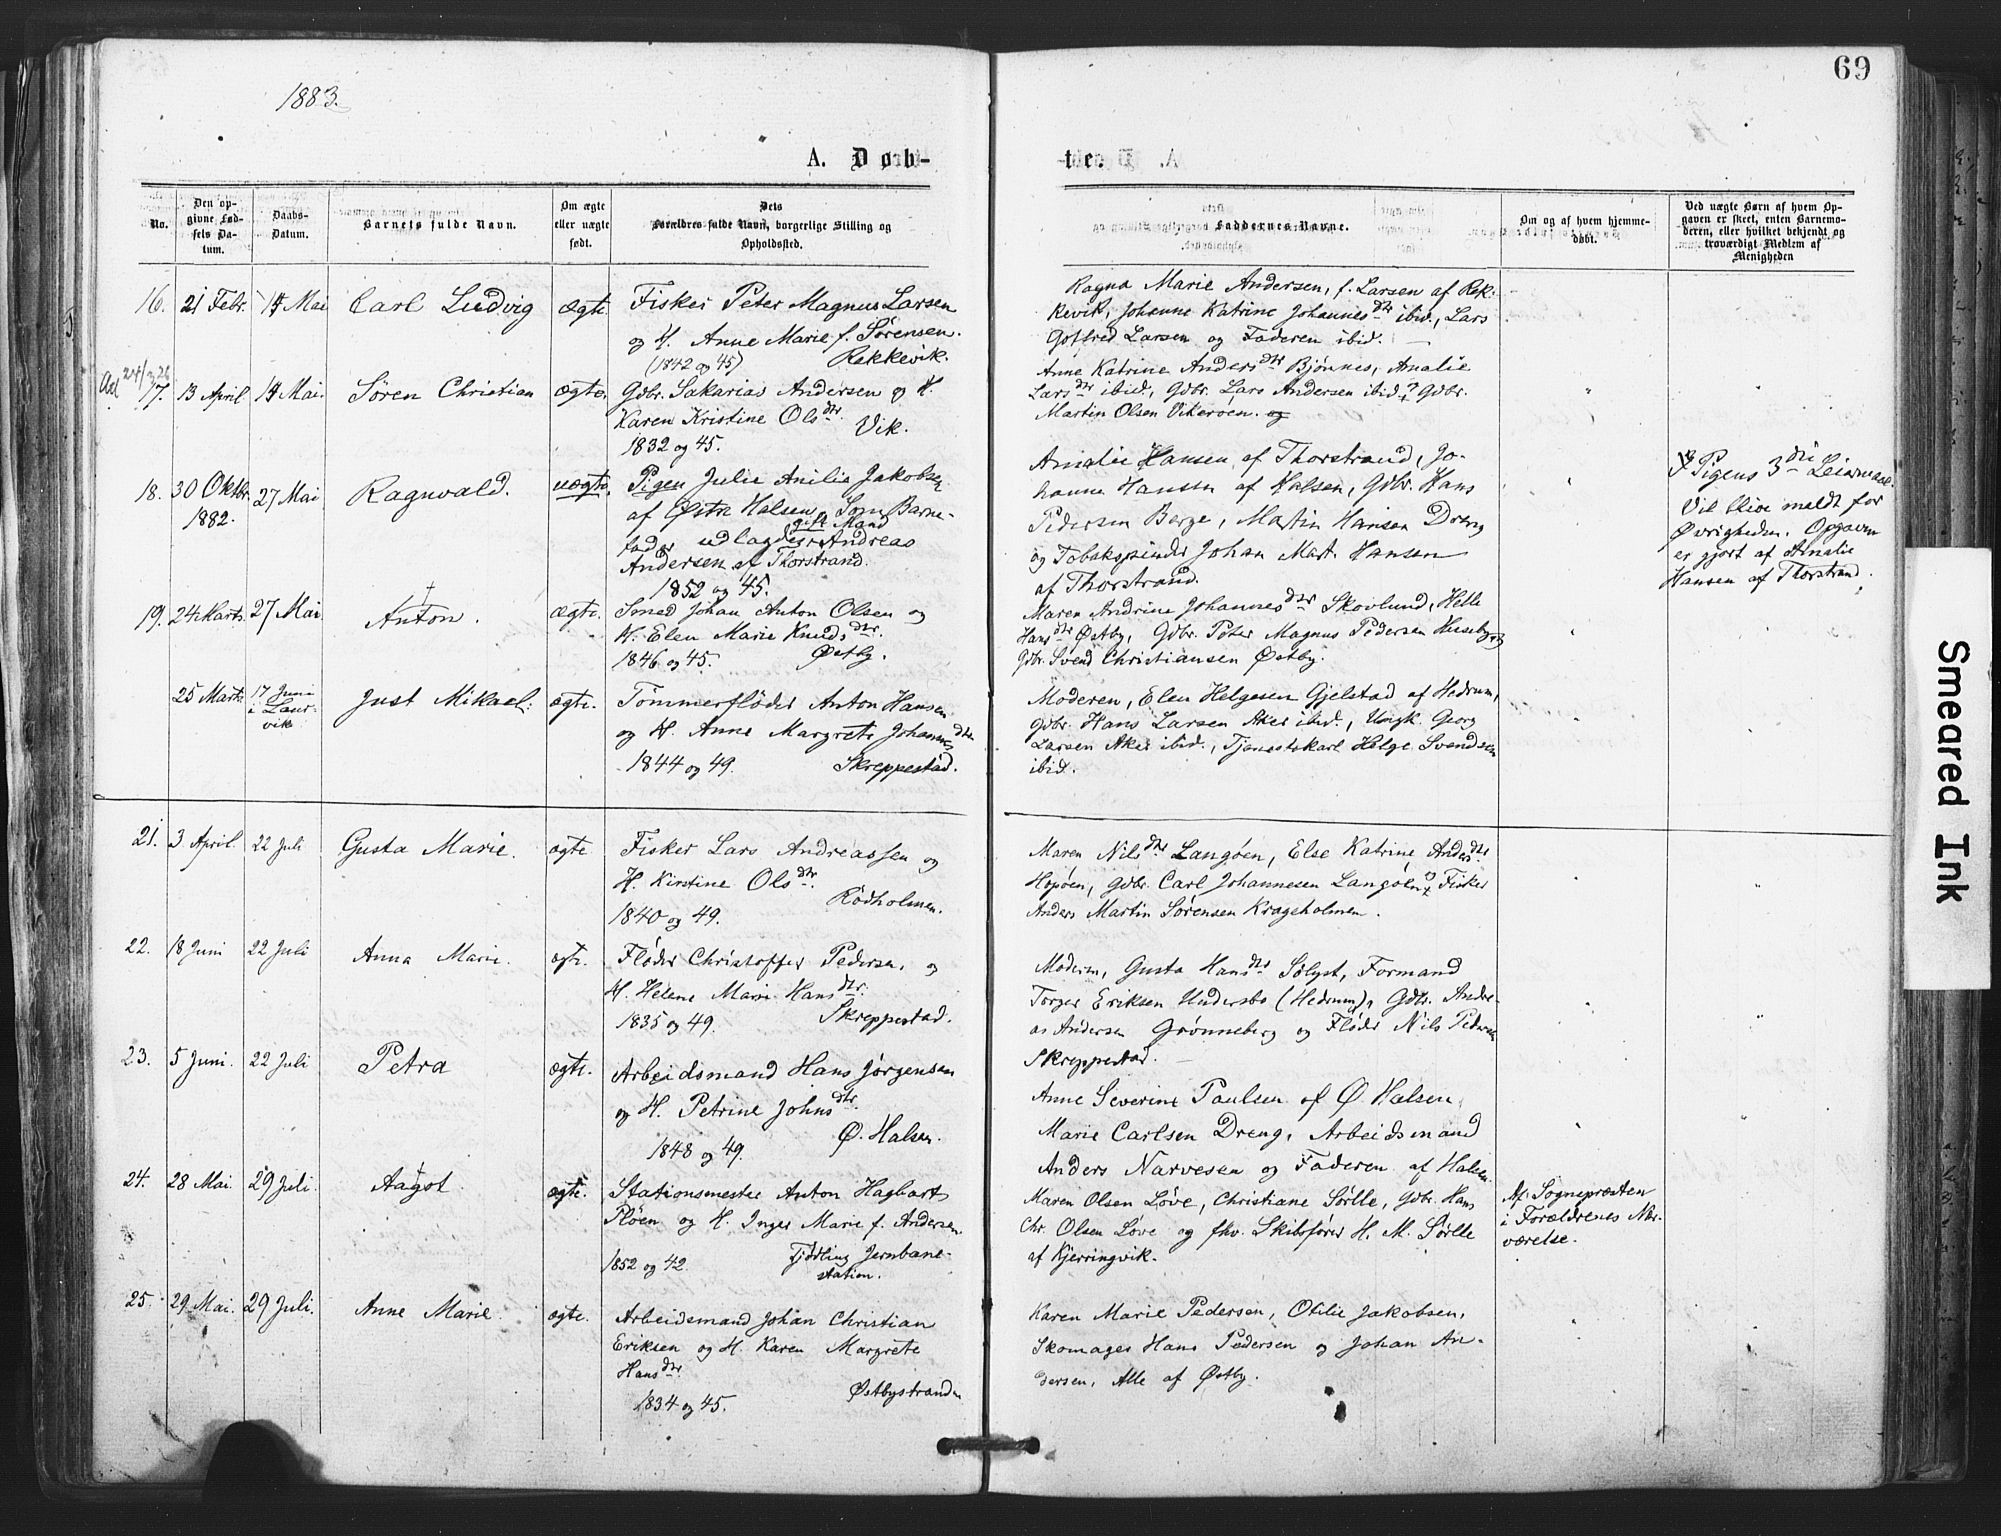 69
1883.
A. Døb-
te.
No.
Den op-
givne Fød-
sels Da-
tum.
Daabs-
Datum.
Barnets fulde Navn.
Om ægte
eller uægte
født.
Dets
Forældres fulde Navn, borgerlige Stilling og
Opholdssted.
Faddernes Navne.
Om og af hvem hjemme-
døbt.
Ved uægte Børn af hvem Op-
gaven er skeet, enten Barnemo-
deren, eller hvilket bekjendt og
troværdigt Medlem af
Menigheden
16. 21 Febr. 14 Mai Carl Ludvig ægte. Fisker Peter Magnus Larsen
og H. Anne Marie f. Sørensen.
(1842 og 45) Rekkevik.
Ragna Marie Andersen, f. Larsen af Rek-
kevik, Johanne Katrine Johannesdtr ibid., Lars
Gotfred Larsen og Faderen ibid.
17. 13 April 14 Mai. Sören Christian ægte. Gdbr. Sakarias Andersen og H.
Karen Kristine Olsdtr. Vik.
1832 og 45.
Anne Katrine Andersdtr Bjønnes, Amalie
Larsdtr ibid., Gdbr. Lars Andersen ibid. og Gdbr.
Martin Olsen Vikerøen. og
18. 30 Oktbr. 1882. 27 Mai Ragnvald. uægte. Pigen Julie Anilia Jakobsen
af Østre Halsen. Som Barne-
fader udlagdes gift Mand Andreas
Andersen af Thorstrand.
1852 og 45.
Amalie Hansen af Thorstrand, Jo-
hanne Hansen af Halsen, Gdbr. Hans
Pedersen Berge, Martin Hansen Dreng
og Tobakspinder Johan Mart. Hansen
af Thorstrand.
Pigens 3die Leiermaal.
Vil blive meldt for
Øvrigheden. Opgaven
er gjort af Amalie
Hansen af Thorstrand.
19. 24 Marts 27 Mai Anton. ægte. Smed Johan Anton Olsen og
H. Elen Marie Knudsdtr.
1846 og 45. Østby.
Maren Andrine Johannesdtr Skovlund, Helle
Hansdtr Østby, Gdbr. Peter Magnus Pedersen Huseby og
Gdbr. Svend Christiansen Østby.
25 Marts 17 Juni i Laur-
vik Just Mikael. ægte. Tömmerflöder Anton Hansen
og H. Anne Margrete Johannesdtr
1844 og 49. Skreppestad.
Moderen, Elen Helgesen Gjelstad af Hedrum,
Gdbr. Hans Larsen Aker ibid., Ungk. Georg
Larsen Aker ibid., Tjenestekarl Helge Svendsen
ibid.
21. 3 April. 22 Juli Gusta Marie. ægte Fisker Lars Andreassen og
H. Kirstine Olsdtr.
1840 og 49. Rödholmen.
Maren Nilsdtr Langøen, Else Katrine Andersdtr
Hopöen, Gdbr. Carl Johannesen Langöen og Fisker
Anders Martin Sørensen Krageholmen.
22. 18 Juni 22 Juli Anna Marie. ægte. Fløder Christoffer Pedersen og
H. Helene Marie Hansdtr.
1835 og 49. Skreppestad.
Moderen, Gusta Hansdtr Sølyst, Formand
Torger Eriksen Undersbo (Hedrum), Gdbr. Andre-
as Andersen Grønneberg og Fløder Nils Pedersen
Skreppestad.
23. 5 Juni. 22 Juli Petra ægte. Arbeidsmand Hans Jørgensen
og H. Petrine Johnsdtr.
1848 og 49. Ø. Halsen.
Anne Severine Paulsen af Ø. Halsen,
Marie Carlsen Dreng, Arbeidsmand
Anders Narvesen og Faderen af Halsen.
24. 28 Mai. 29 Juli. Aagot. ægte. Stationsmester Anton Hagbart
Pløen og H. Inger Marie f. Andersen
1852 og 42. Tjødling Jernbane-
station.
Maren Olsen Løve, Christiane Sørlle, Gdbr. Hans
Chr. Olsen Løve og fhv. Skibsfører H. M. Sørlle
af Kjerringvik.
Af Sognepræsten
i Forældrenes Nær-
værelse.
25. 29 Mai. 29 Juli. Anne Marie. ægte. Arbeidsmand Johan Christian
Eriksen og H. Karen Margrete
Hansdtr.
1834 og 45. Østbystranden
Karen Marie Pedersen, Otilie Jakobsen,
Skomager Hans Pedersen og Johan An-
dersen. Alle af Østby.
Smeared Ink